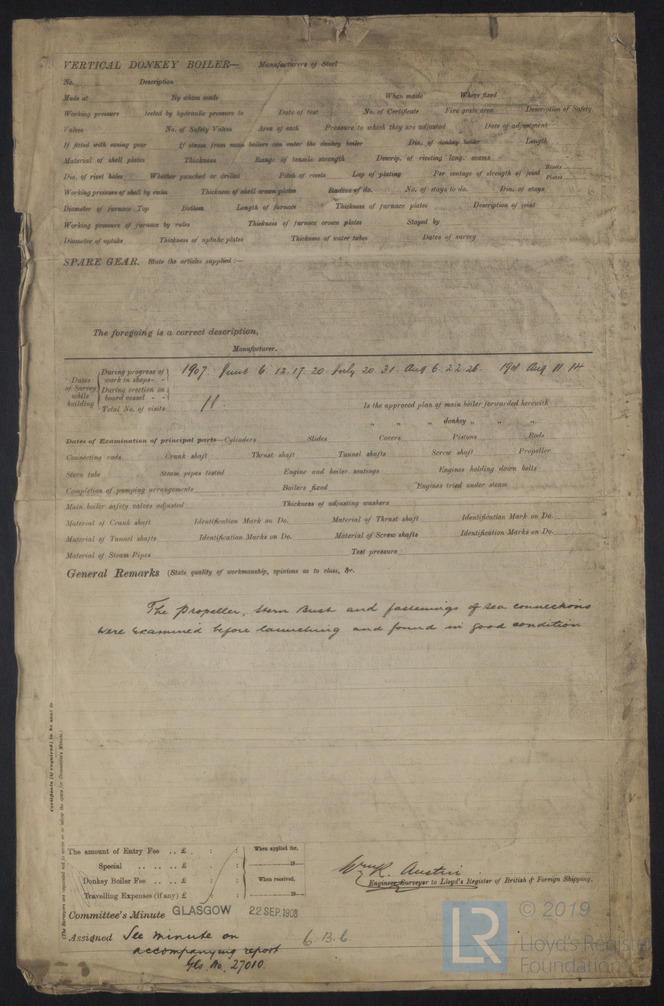 VERTICAL DONKEY BOILER— Manufacturers of Steel
No. Description
Made at By whom made When made Where fixed
Working pressure tested by hydraulic pressure to Date of test No. of Certificate Fire grate area Description of Safety
Valves No. of Safety Valves Area of each Pressure to which they are adjusted Date of adjustment
If fitted with easing gear If steam from main boilers can enter the donkey boiler Dia. of donkey boiler Length
Material of shell plates Thickness Range of tensile strength Descrip. of riveting long. seams
Dia. of rivet holes Whether punched or drilled Pitch of rivets Lap of plating Per centage of strength of joint Rivets Plates
Working pressure of shell by rules Thickness of shell crown plates Radius of do. No. of stays to do. Dia. of stays
Diameter of furnace Top Bottom Length of furnace Thickness of furnace plates Description of joint
Working pressure of furnace by rules Thickness of furnace crown plates Stayed by
Diameter of uptake Thickness of uptake plates Thickness of water tubes Dates of survey
SPARE GEAR. State the articles supplied :—
The foregoing is a correct description,
Manufacturer.
Dates of Survey while building
During progress of work in shops- - 1907. June 6. 12. 17. 20. July 20. 31. Aug 6. 22. 26. Aug 11. 14
During erection on board vessel - -
Total No. of visits 11 Is the approved plan of main boiler forwarded herewith
" " donkey " " "
Dates of Examination of principal parts—Cylinders Slides Covers Pistons Rods
Connecting rods Crank shaft Thrust shaft Tunnel shafts Screw shaft Propeller
Stern tube Steam pipes tested Engine and boiler seatings Engines holding down bolts
Completion of pumping arrangements Boilers fixed Engines tried under steam
Main boiler safety valves adjusted Thickness of adjusting washers
Material of Crank shaft Identification Mark on Do. Material of Thrust shaft Identification Mark on Do.
Material of Tunnel shafts Identification Marks on Do. Material of Screw shafts Identification Marks on Do.
Material of Steam Pipes Test pressure
General Remarks (State quality of workmanship, opinions as to class, &c.
The propeller, Stern Bush and fastenings of sea connections
were examined before launching and found in good condition
Certificate (if required) to be sent to
The amount of Entry Fee .. .. £ : : When applied for,
Special .. .. £ : : 19
Donkey Boiler Fee .. .. £ : : When received,
Travelling Expenses (if any) £ : : 19
Wm R. Austin
Engineer Surveyor to Lloyd's Register of British & Foreign Shipping.
Committee's Minute GLASGOW 22 SEP. 1908
Assigned See minute on
accompanying report
Gls. No. 27010
© 2019
LR
Lloyd's Register
Foundation